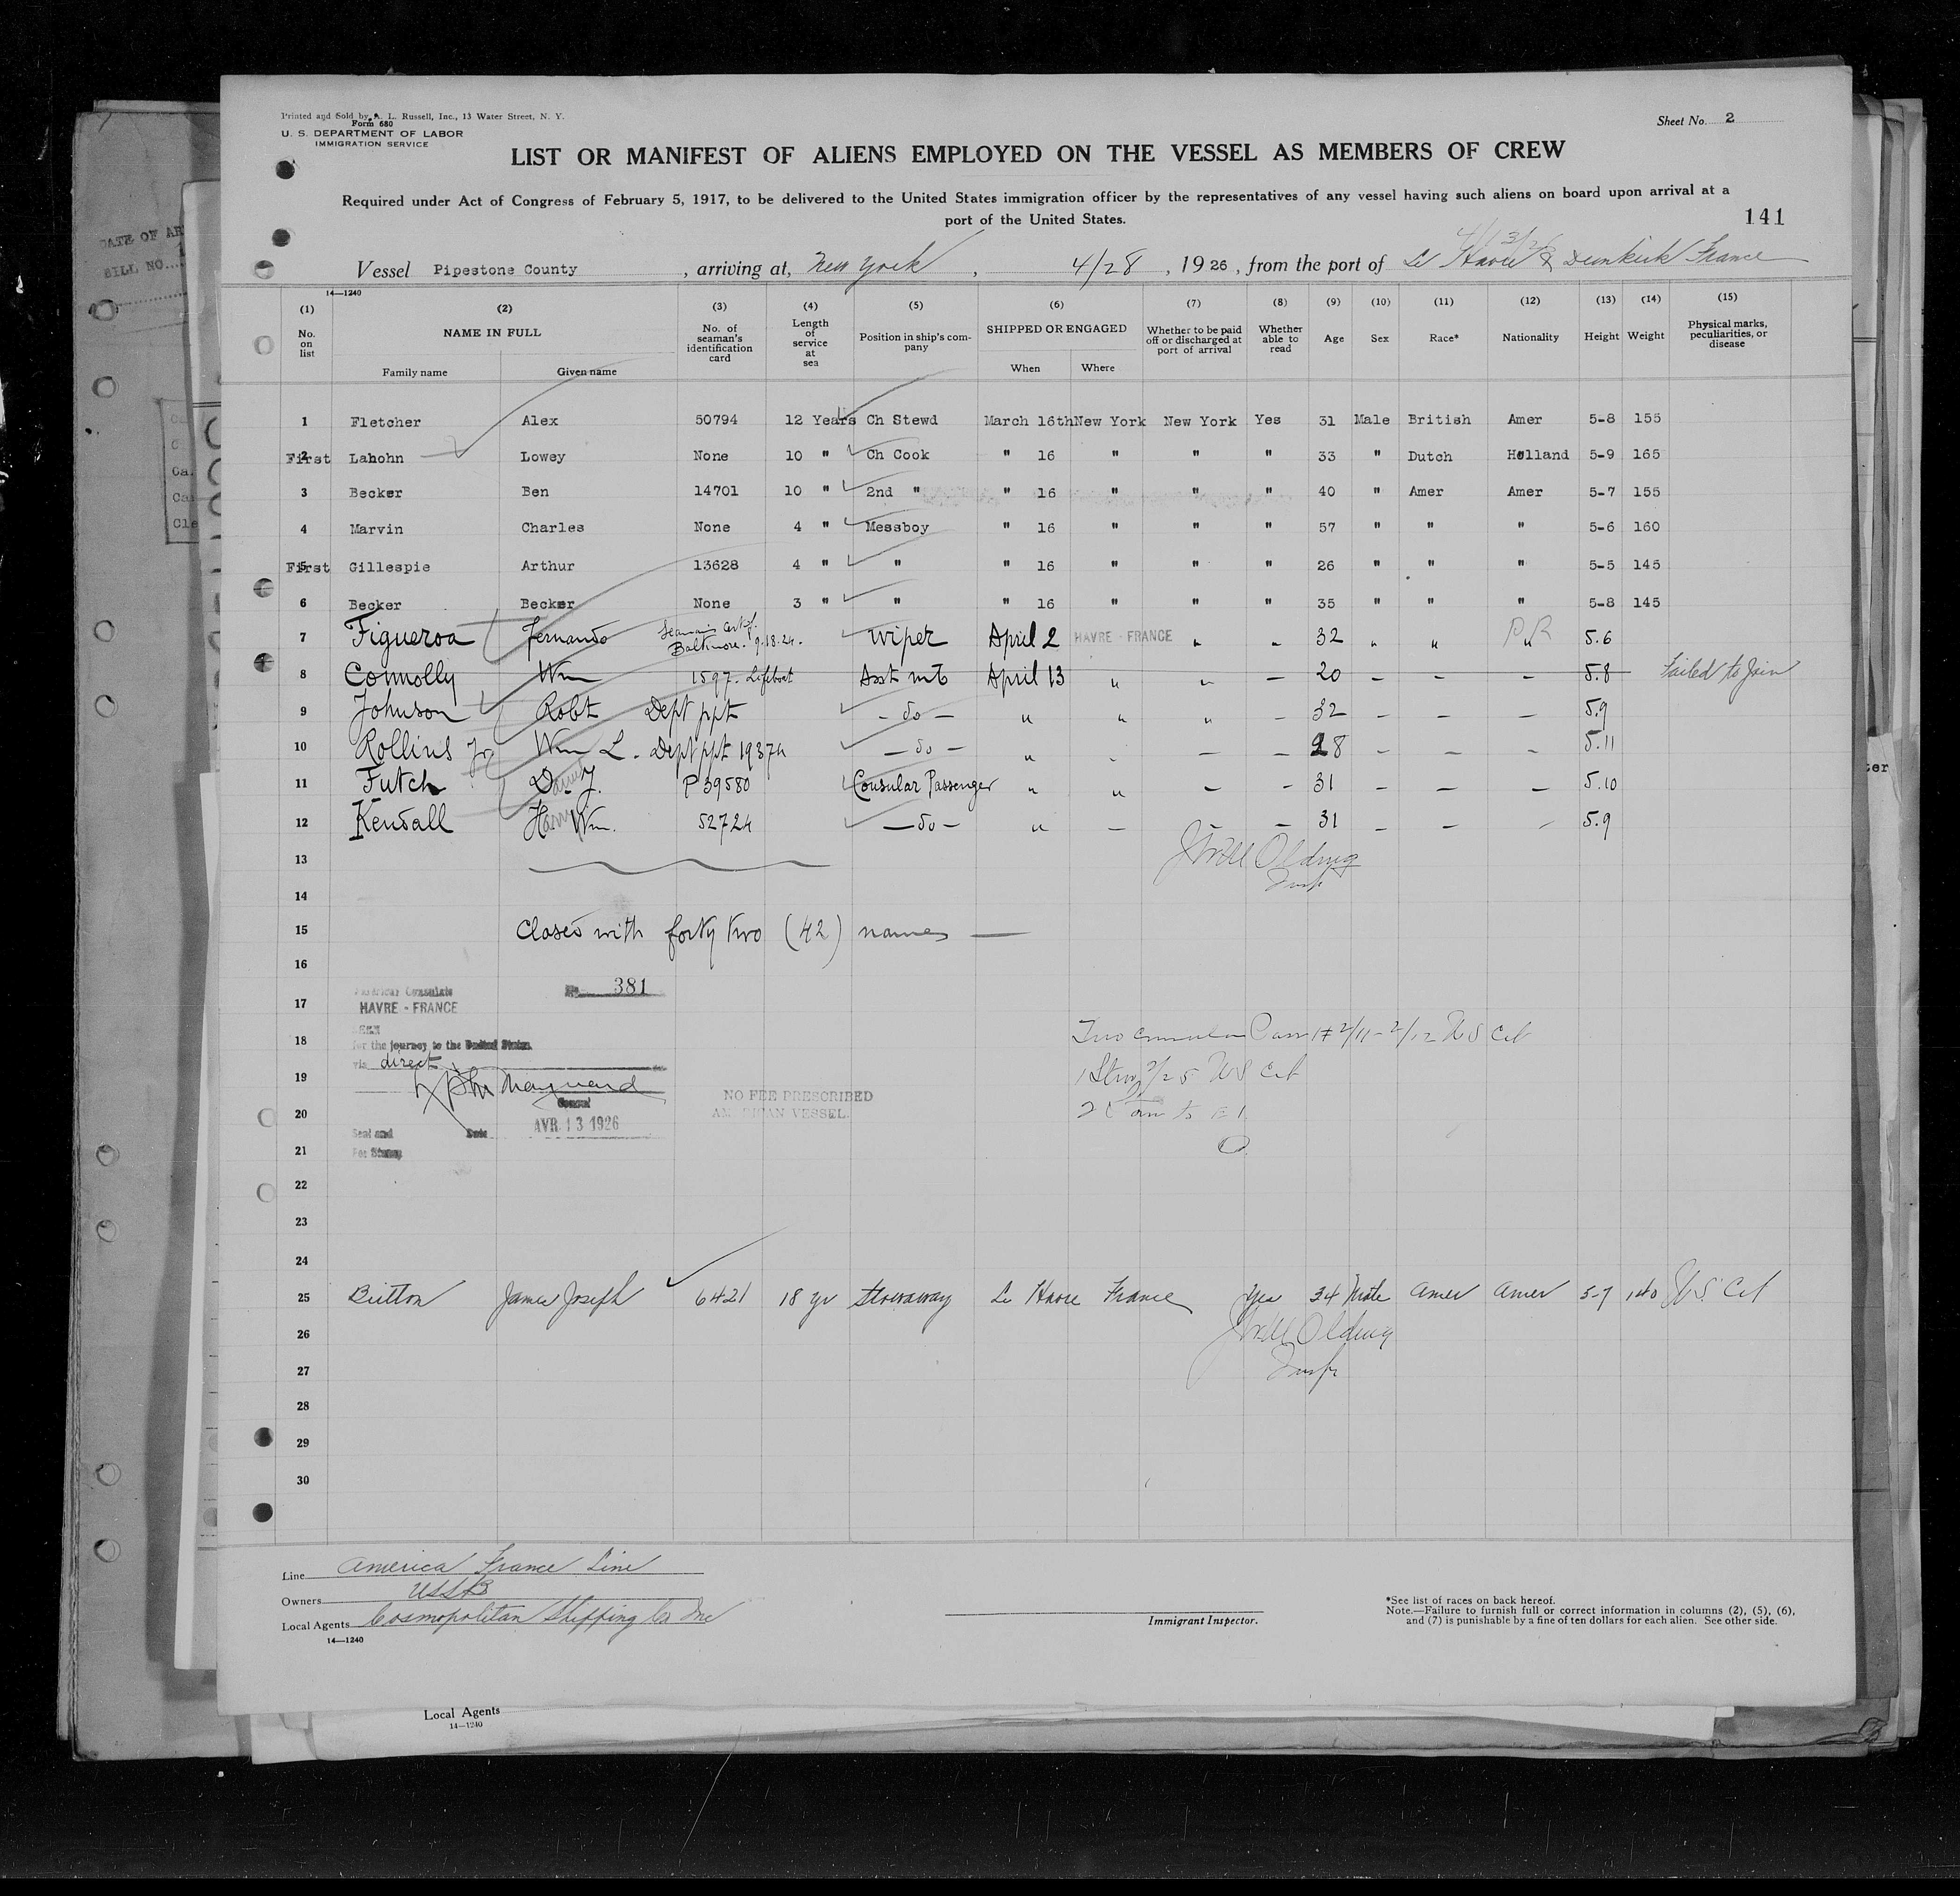 Printed and Sold by A. L. Russell, Inc., 13 Water Street, N. Y.
Form 680
U. S. DEPARTMENT OF LABOR
IMMIGRATION SERVICE
Sheet No. 2
LIST OR MANIFEST OF ALIENS EMPLOYED ON THE VESSEL AS MEMBERS OF CREW
Required under Act of Congress of February 5, 1917, to be delivered to the United States immigration officer by the representatives of any vessel having such aliens on board upon arrival at a
port of the United States.
141
Vessel Pipestone County, arriving at, New York, 4/28, 1926, from the port of Le Havre & Dunkirk France
14—1240
(1) (2) (3) (4) (5) (6) (7) (8) (9) (10) (11) (12) (13) (14) (15)
No. on list NAME IN FULL No. of seaman's identification card Length of service at sea Position in ship's company SHIPPED OR ENGAGED Whether to be paid off or discharged at port of arrival Whether able to read Age Sex Race* Nationality Height Weight Physical marks, peculiarities, or disease
Family name Given name When Where
1 Fletcher Alex 50794 12 Years Ch Stewd March 16th New York New York Yes 31 Male British Amer 5-8 155
First 2 Lahohn Lowey None 10 " Ch Cook " 16 " " " 33 " Dutch Holland 5-9 165
3 Becker Ben 14701 10 " 2nd " " 16 " " " 40 " Amer Amer 5-7 155
4 Marvin Charles None 4 " Messboy " 16 " " " 57 " " " 5-6 160
First 5 Gillespie Arthur 13628 4 " " " 16 " " " 26 " " " 5-5 145
6 Becker Becker None 3 " " " 16 " " " 35 " " " 5-8 145
7 Figueroa Fernando Baltimore. 9.18.24. Wiper April 2 HAVRE - FRANCE " " 32 " " P.R. " 5.6
8 Connolly Wm 1597. Lifeboat April 13 " " — 20 — — — 5.8 Failed to Join
9 Johnson Robt Dept ppt — do — " " " — 32 — — — 5.9
10 Rollins Jr. Wm L. Dept ppt 19374 — do — " " — — 28 — — — 5.11
11 Futch D. J. P 39580 Consular Passenger " " — — 31 — — — 5.10
12 Kendall Wm. 52724 — do — " — — — 31 — — — 5.9
13
Insp
14
15 Closed with forty two (42) names —
16
American Consulate No. 381
17 HAVRE - FRANCE
SEEN
18 for the journey to the United States.
via direct
19
20 Consul NO FEE PRESCRIBED
AMERICAN VESSEL.
Seal and Date AVR. 13 1926
21 Fee Stamp
22
23
24
25 Britton James Joseph 6421 18 yr Stowaway Le Havre France Yes 34 Male Amer Amer 5-7 140 U.S. Cit
26
27 Insp
28
29
30
Line America France Line
Owners USSB
Local Agents Cosmopolitan Shipping Co Inc
14—1240
Immigrant Inspector.
*See list of races on back hereof.
Note.—Failure to furnish full or correct information in columns (2), (5), (6),
and (7) is punishable by a fine of ten dollars for each alien. See other side.
Local Agents
14—1240